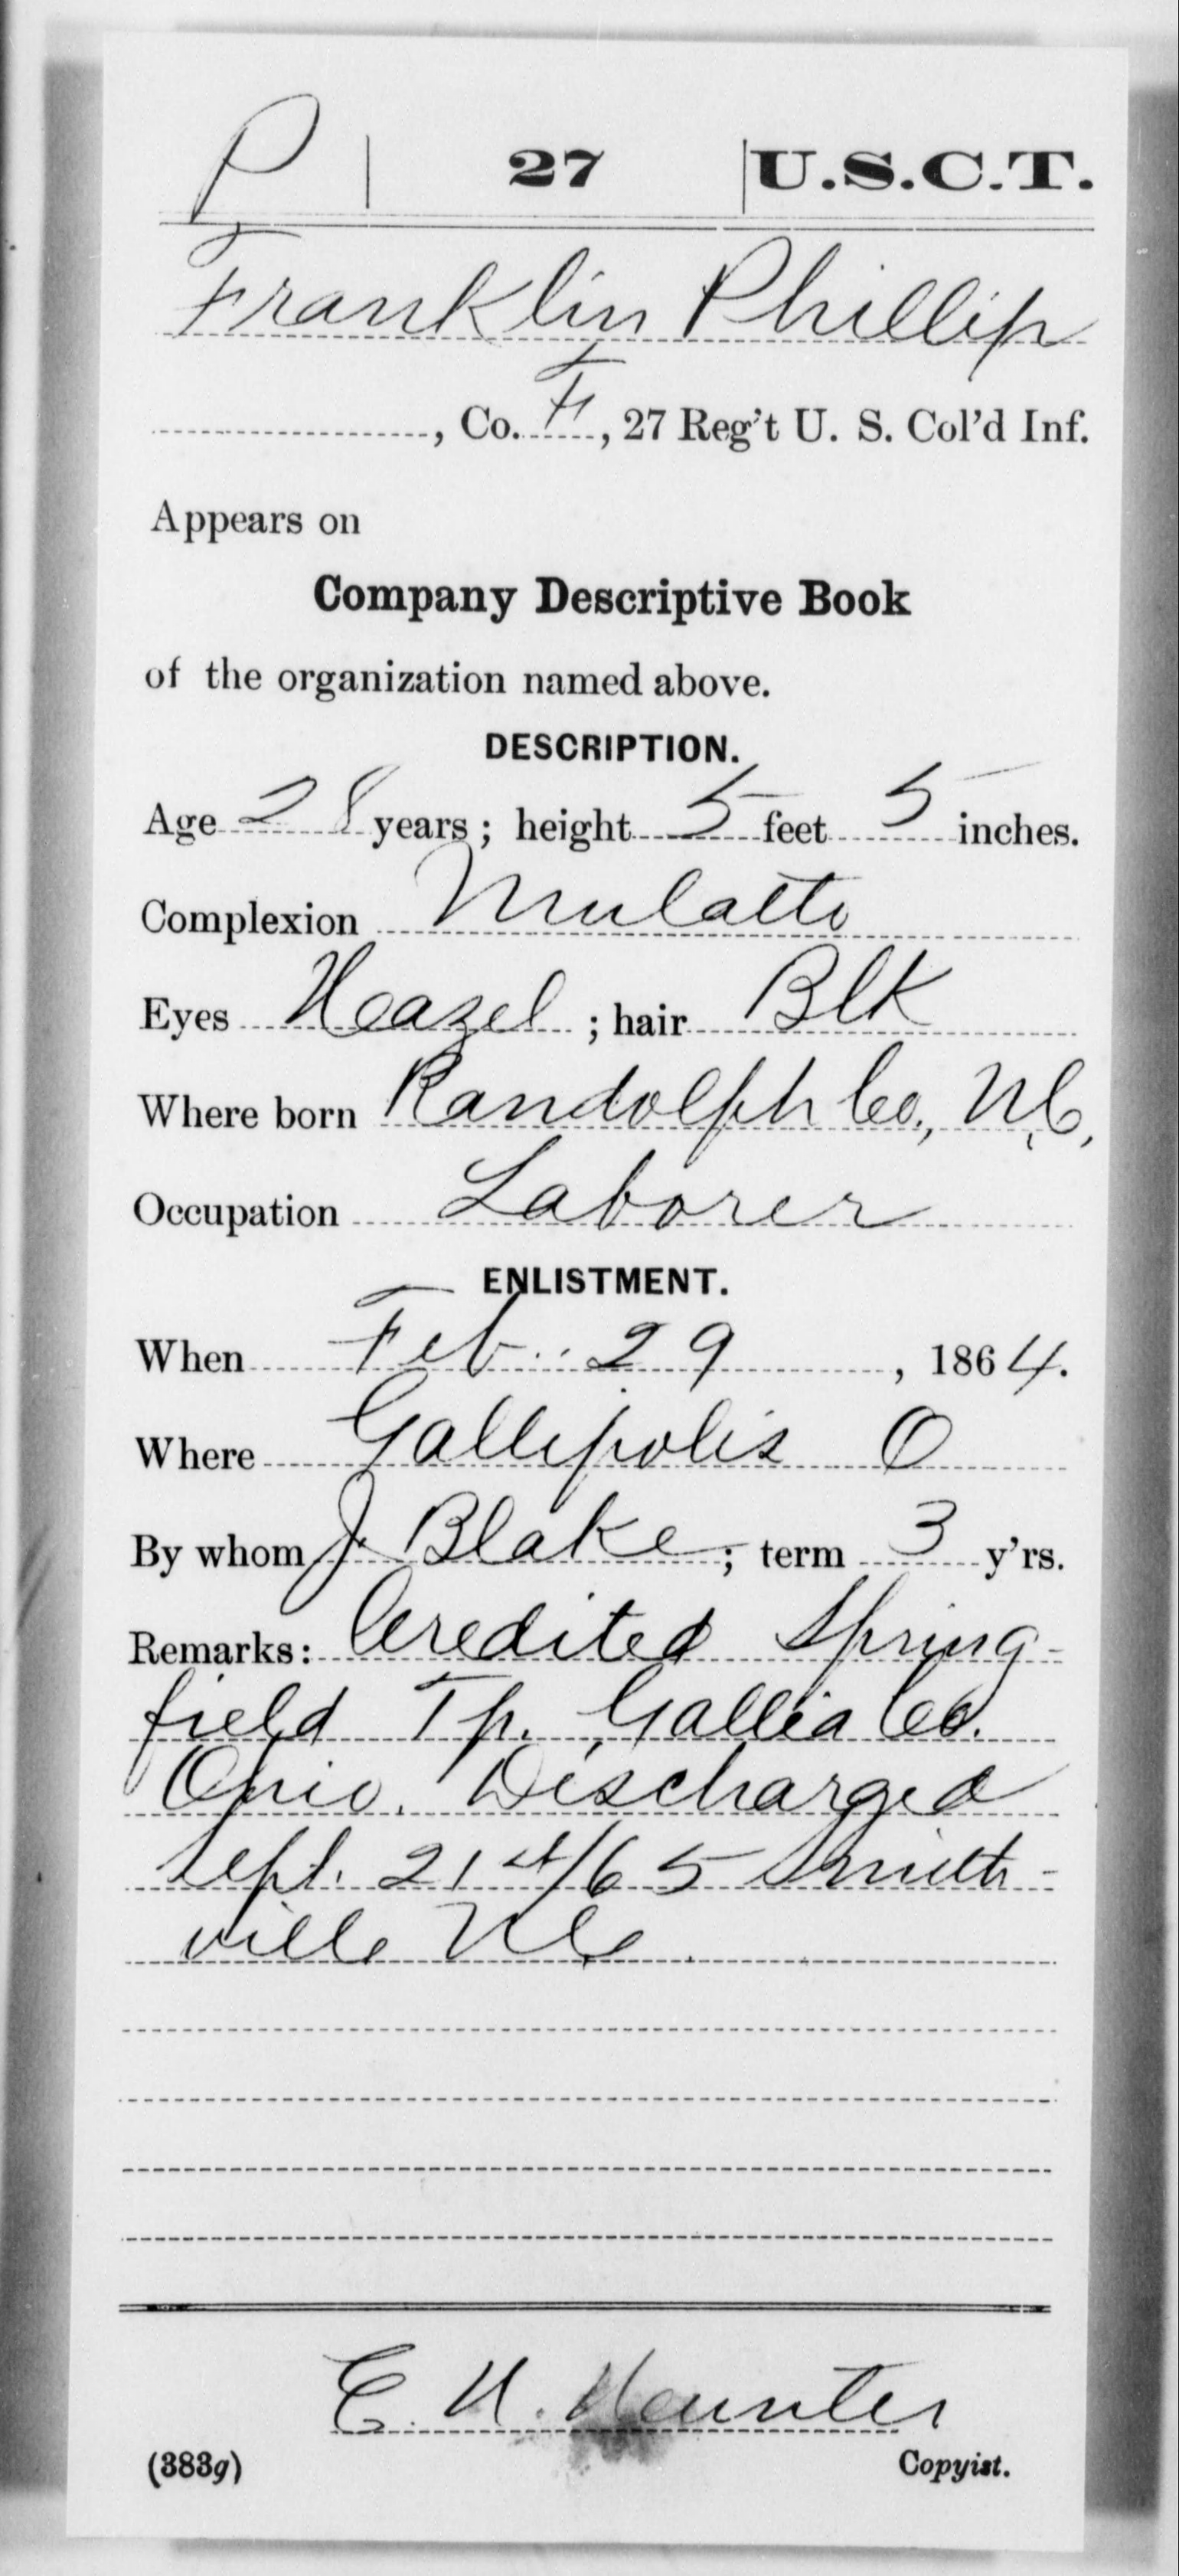 P 27 U.S.C.T.
Franklin Phillip
, Co. F, 27 Reg't U. S. Col'd Inf.
Appears on
Company Descriptive Book
of the organization named above.
DESCRIPTION.
Age 28 years; height 5 feet 5 inches.
Complexion Mulatto
Eyes Heazel; hair Blk
Where born Randolph Co., N.C.
Occupation Laborer
ENLISTMENT.
When Feb. 29, 1864.
Where Gallipolis O
By whom J. Blake; term 3 y'rs.
Remarks: Credited Spring-
field Tp. Gallia Co.
Ohio. Discharged
Sept. 21st/65 Smith-
ville N C.
C. H.
(383g) Copyist.